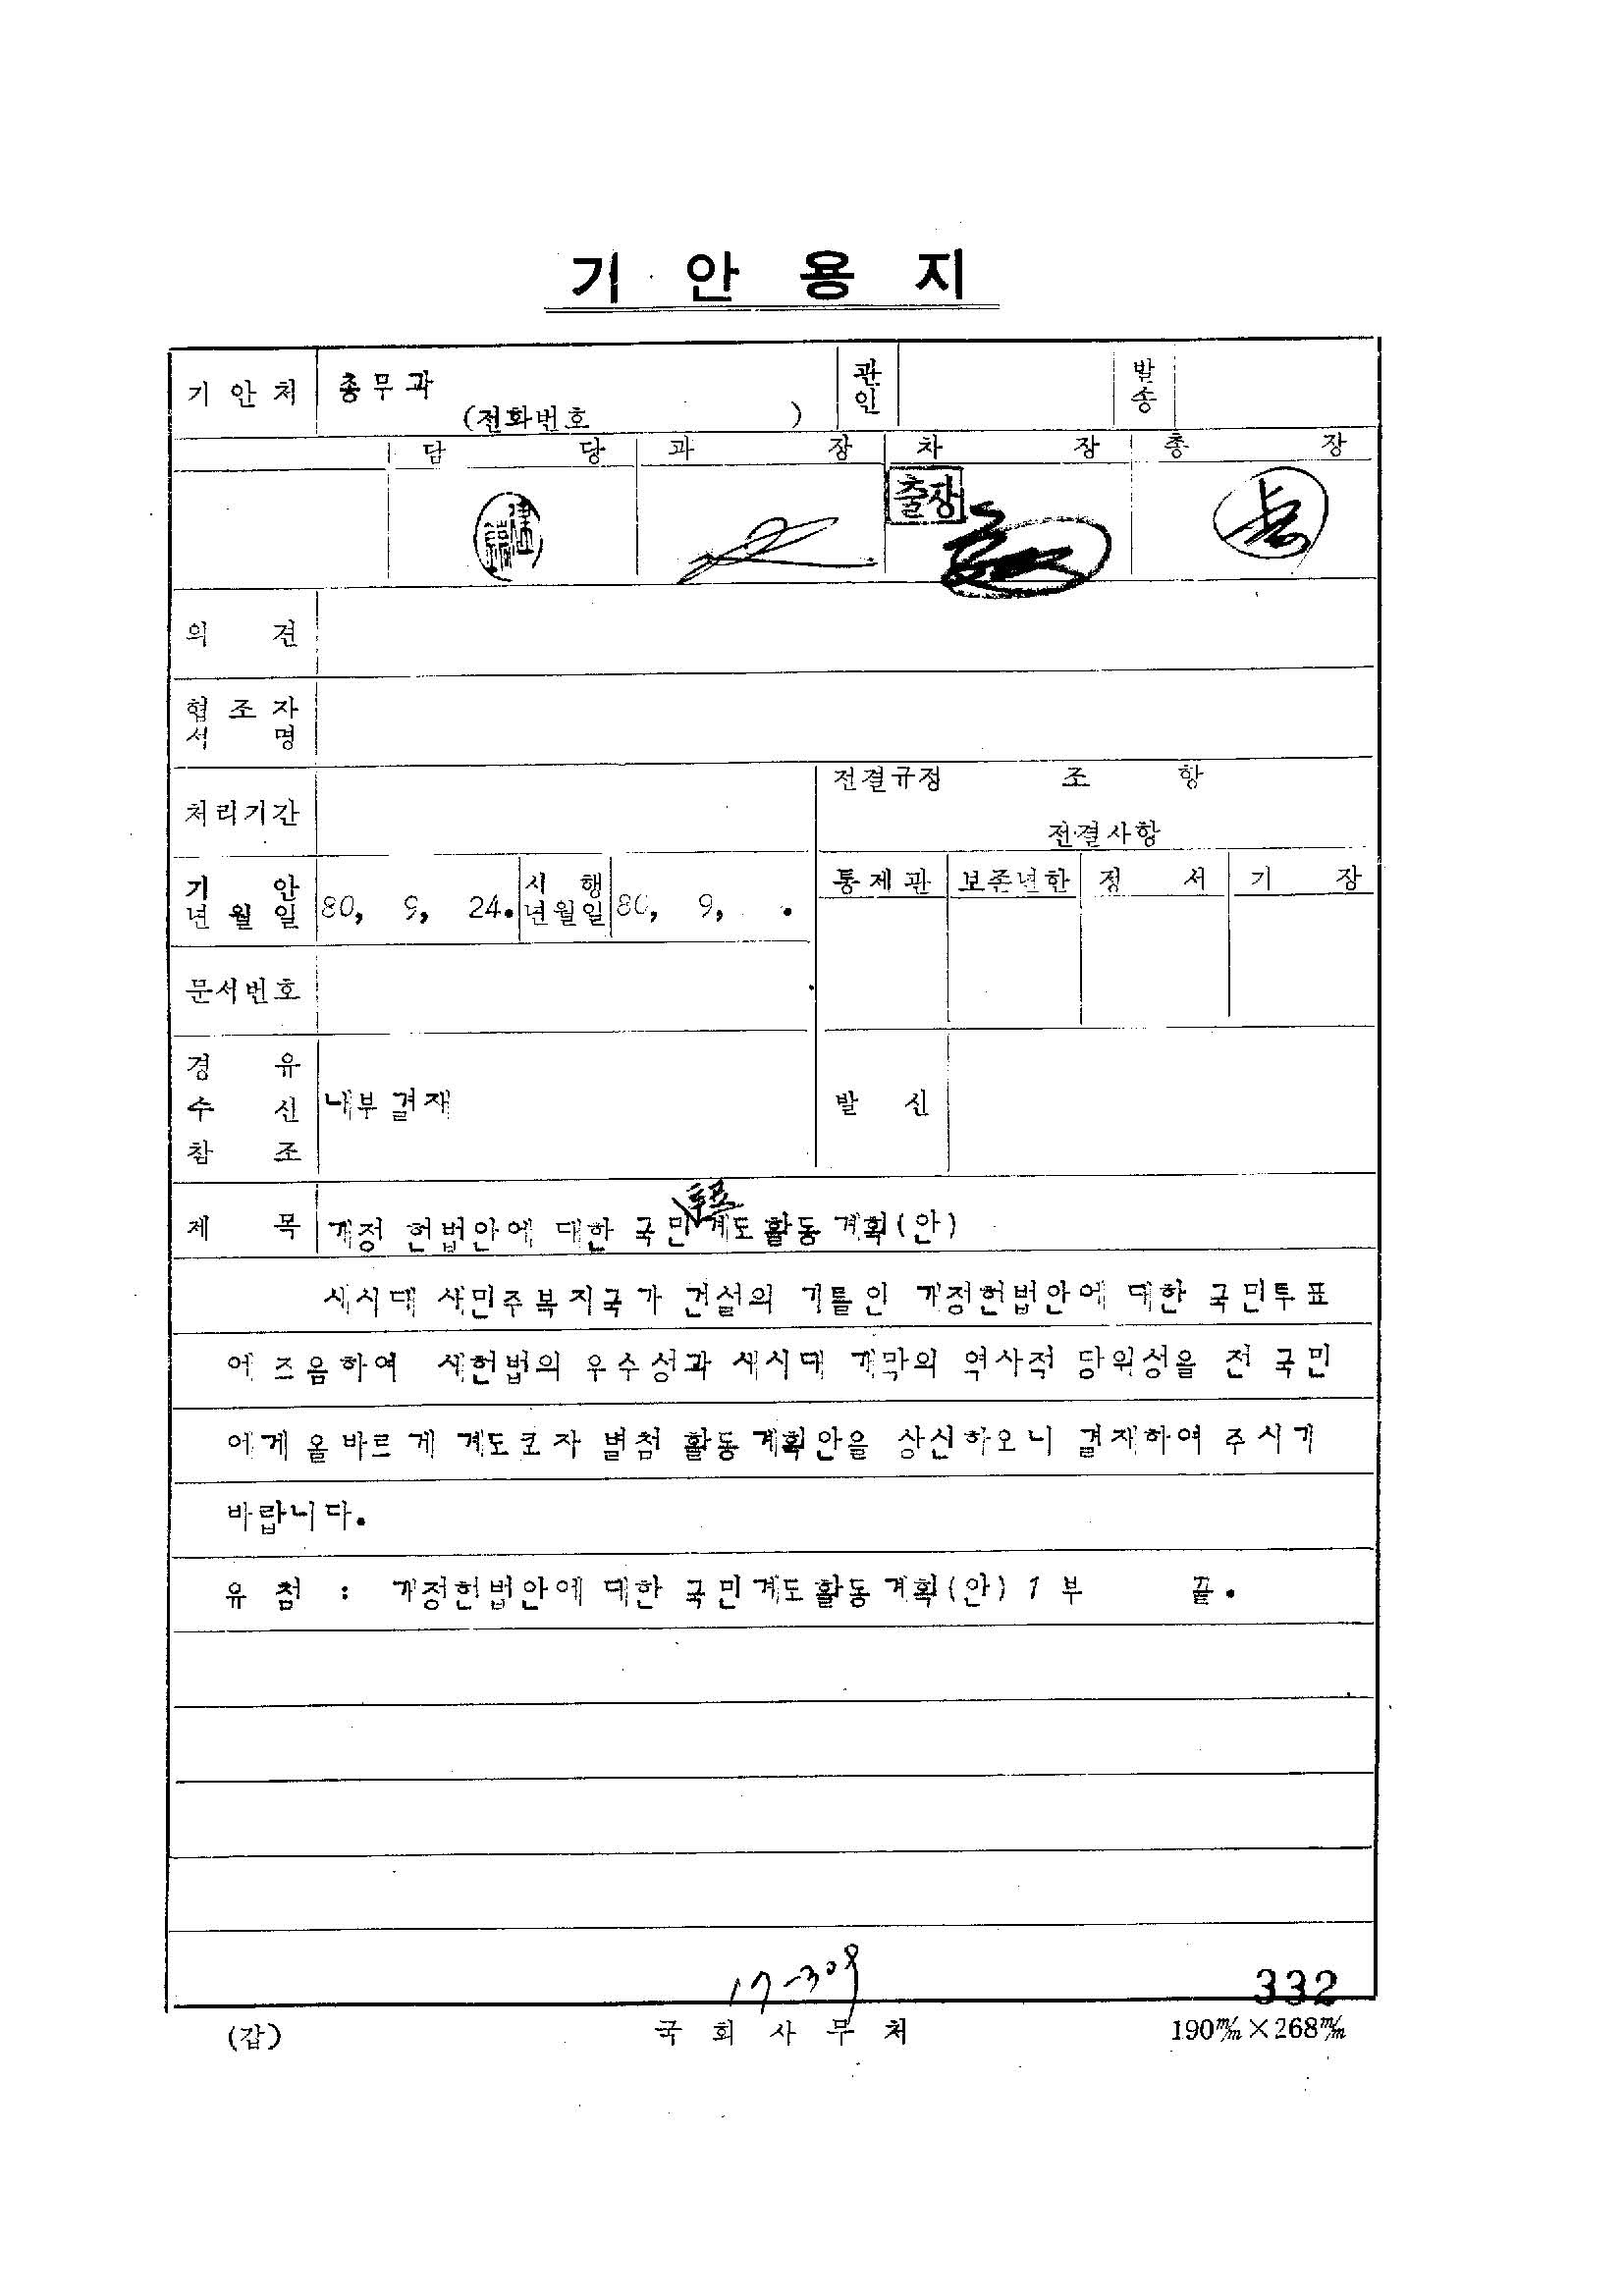 기 안 용 지
기 안 처 총무과 관인 발송
(전화번호 )
담 당 과 장 차 장 총 장
출장
의 견
협 조 자
서 명
처리기간 전결규정 조 항
전결사항
기 안 시 행 통제관 보존년한 정 서 기 장
년 월 일 80, 9, 24. 년월일 80, 9, .
문서번호
경 유
수 신 내부결재 발 신
참 조
투표
제 목 개정 헌법안에 대한 국민계도활동계획(안)
새시대 새민주복지국가 건설의 기틀인 개정헌법안에 대한 국민투표
에 즈음하여 새헌법의 우수성과 새시대 개막의 역사적 당위성을 전 국민
에게 올바르게 계도코자 별첨 활동계획안을 상신하오니 결재하여 주시기
바랍니다.
유 첨 : 개정헌법안에 대한 국민계도활동계획(안) 1 부 끝.
17-309 332
(갑) 국 회 사 무 처 190㎜×268㎜